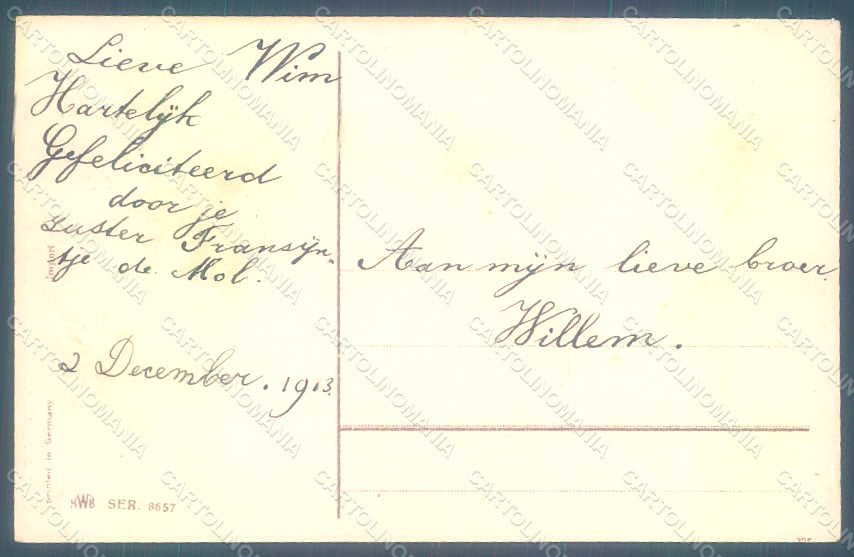 Lieve Wim
Hartelijk
Gefeliciteerd
door je
zuster Fransijn-
tje de Mol.
2 December. 1913.
Aan mijn lieve broer.
Willem.
Import
printed in Germany
HWB SER. 8657
CARTOLINOMANIA